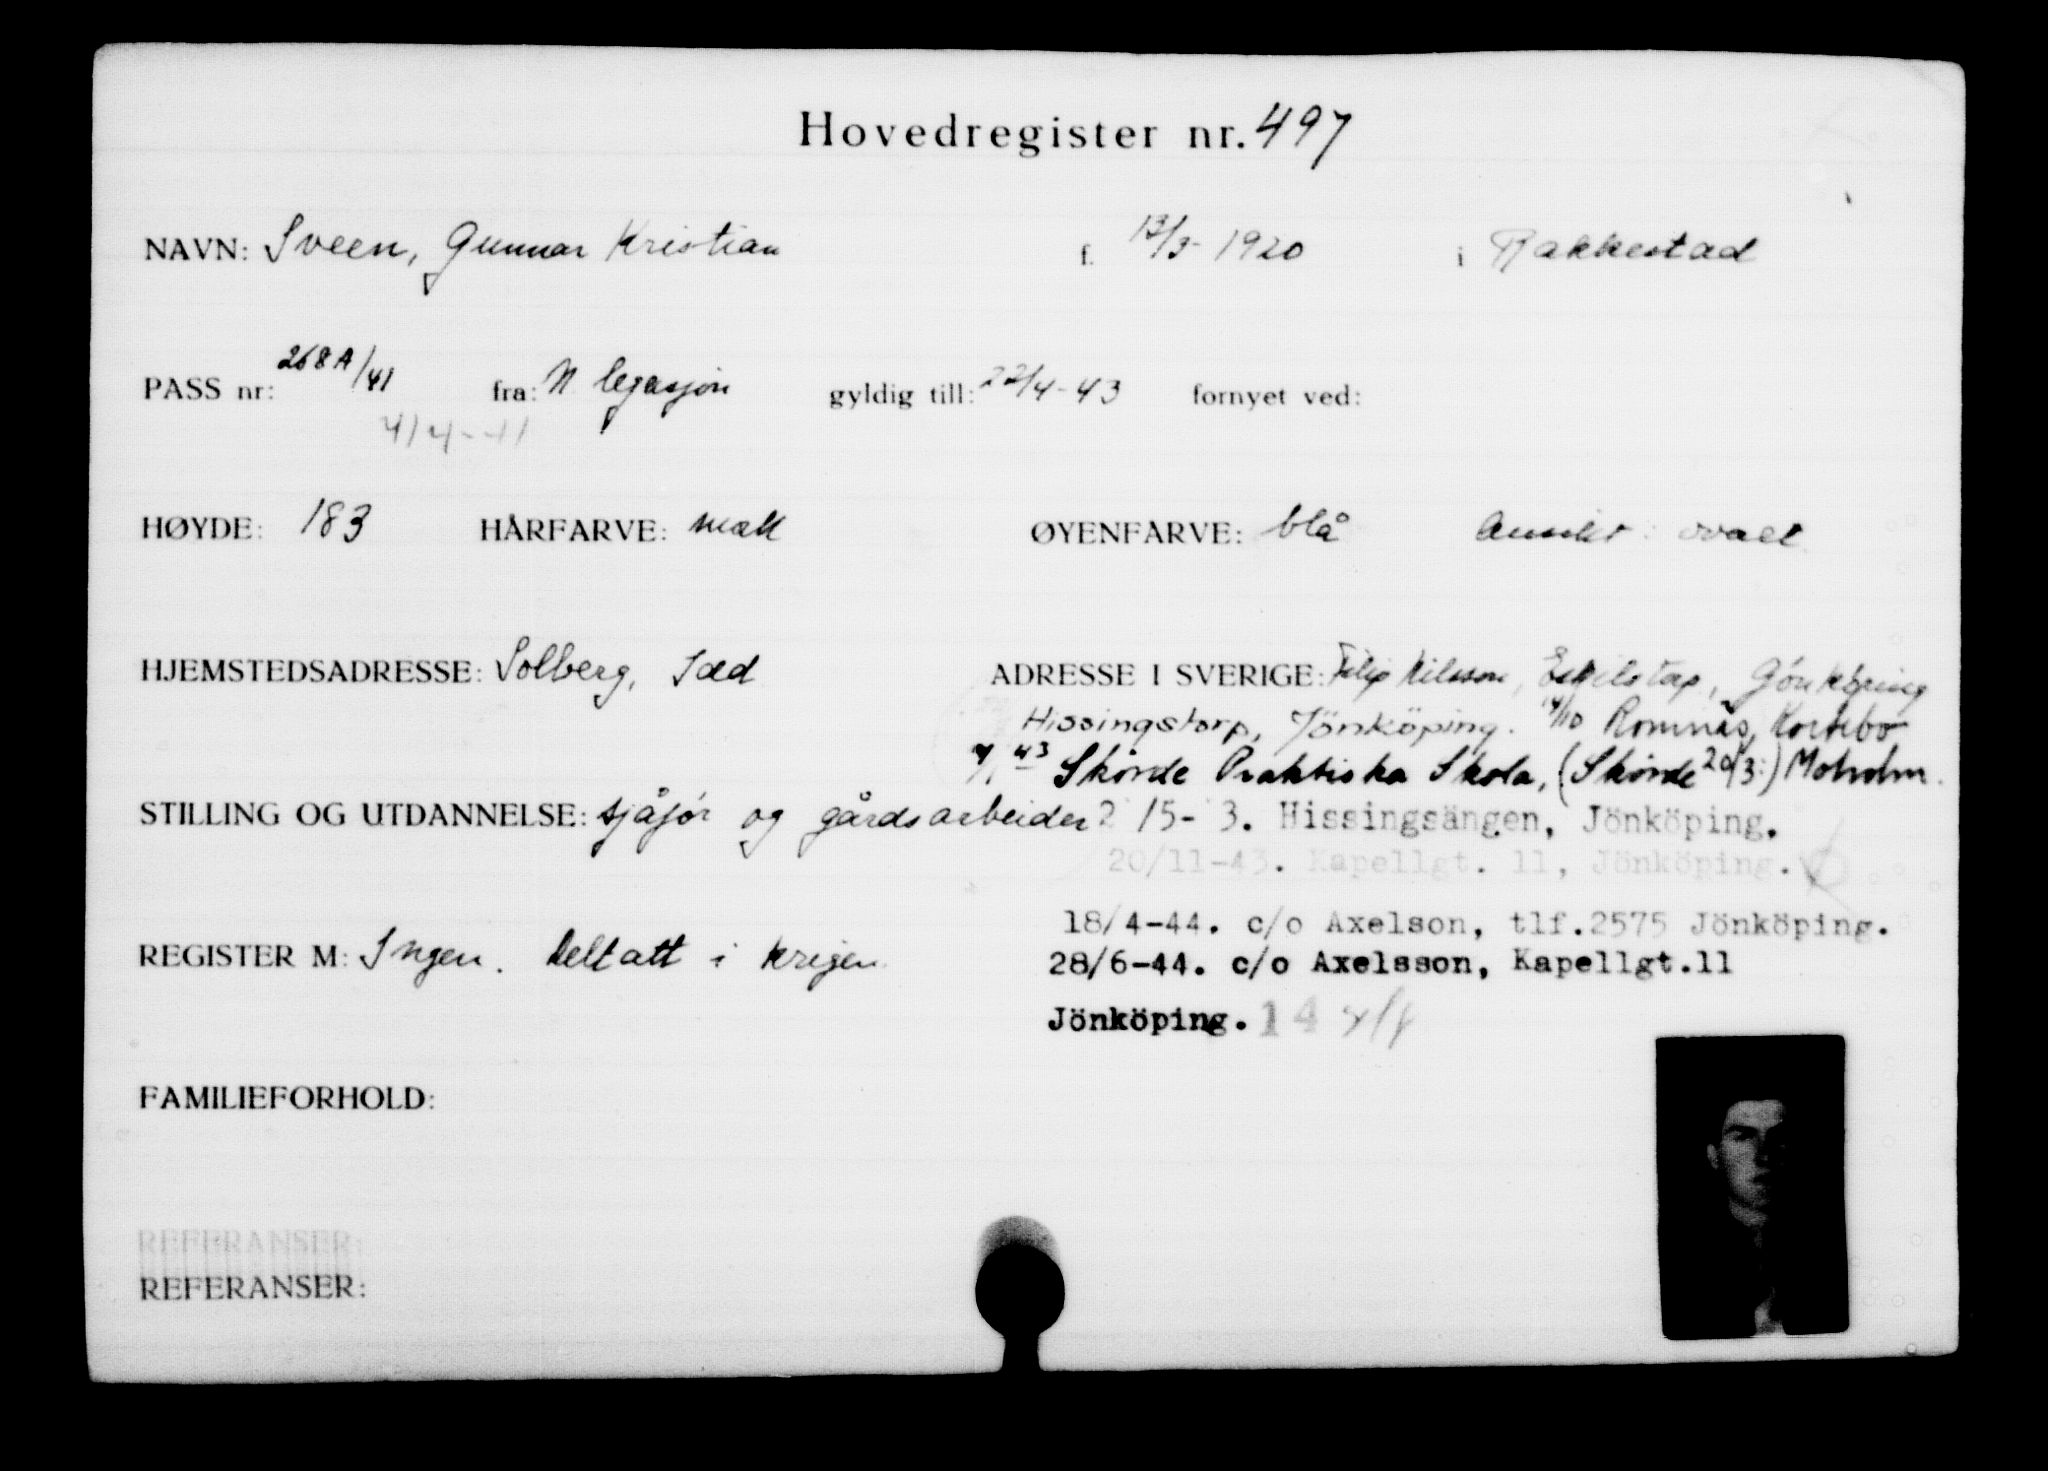 Hovedregister nr. 497
NAVN: Sveen, Gunnar Kristian f. 12/3-1920 i Rakkestad
PASS nr: 268A/41 fra: N legasjon gyldig till: 22/4-43 fornyet ved:
HØYDE: 183 HÅRFARVE: mørk ØYENFARVE: blå Ansikt: ovalt
HJEMSTEDSADRESSE: Solberg, Idd ADRESSE I SVERIGE: Filip Nilsson, Eskilstorp, Jönköping
Hissingstorp, Jönköping. 14/10 Romnäs, Kortebo
43 Skövde Praktiska Skola, (Skövde 20/3:) Moholm.
STILLING OG UTDANNELSE: sjåfør og gårdsarbeider 2/5- 3. Hissingsängen, Jönköping.
20/11-43. Kapellgt. 11, Jönköping.
18/4-44. c/o Axelson, tlf.2575 Jönköping.
REGISTER M: Ingen. Deltatt i krigen. 28/6-44. c/o Axelsson, Kapellgt.11
Jönköping. 14
FAMILIEFORHOLD:
REFERANSER:
REFERANSER: